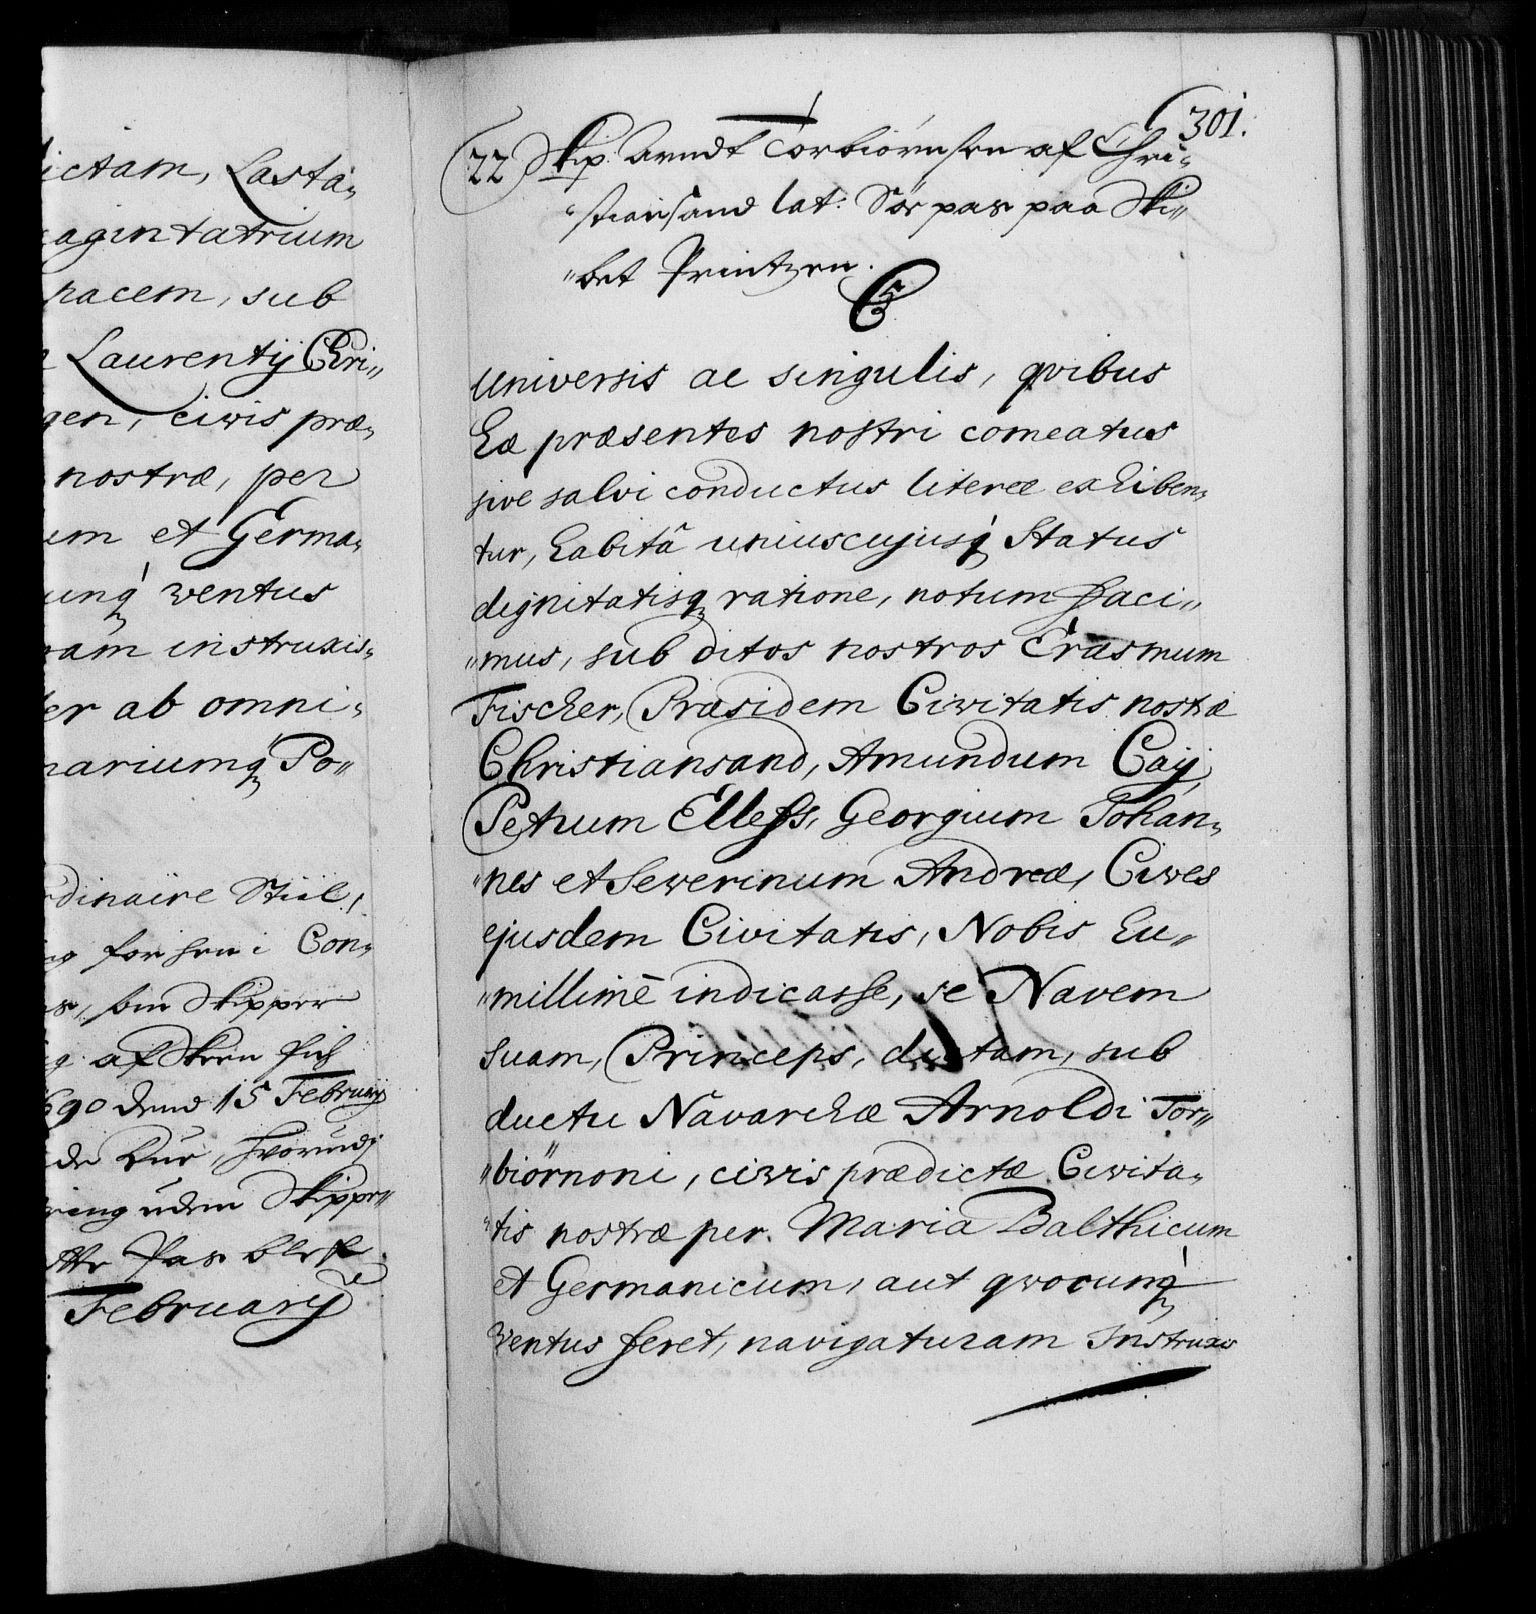 ictam, Lasta-
agintatrium
pacem, sub
Laurentij Chri-
gen, civis præ-
nostræ, per
um et Germa-
unq ventus
ram instruxis-
ter ab omni-
nariumq Po-
dinaire Stiil,
for hen i Con-
Skipper
af Skeen
690 dend 15 February
uden Skippe-
Pas blef
February
301.
22) Skip: Arndt Torbiörnsen af Chri-
stiansand lat: Söe pas paa Ski-
bet Printzen.
C5
Universis ac singulis, qvibus
hæ præsentes nostri comeatus
sive salvi conductus literæ exhiben-
tur, habitâ uniuscujusq Status
dignitatisq ratione, notum faci-
mus, subditos nostros Erasmum
Fischer, Præsidem Civitatis nostræ
Christiansand, Amundum Caij,
Petrum Elless, Georgium Johan-
nes et Severinum Andreæ, Cives
ejusdem Civitatis, Nobis hu-
millimè indicasse, se Navem
suam, Princeps, dictam, sub
ductu Navarchæ Arnoldi Tor-
biörnoni, civis prædictæ Civita-
tis nostræ per Maria Balthicum
et Germanicum, aut qvocunq
ventus feret, navigaturam Instruxis